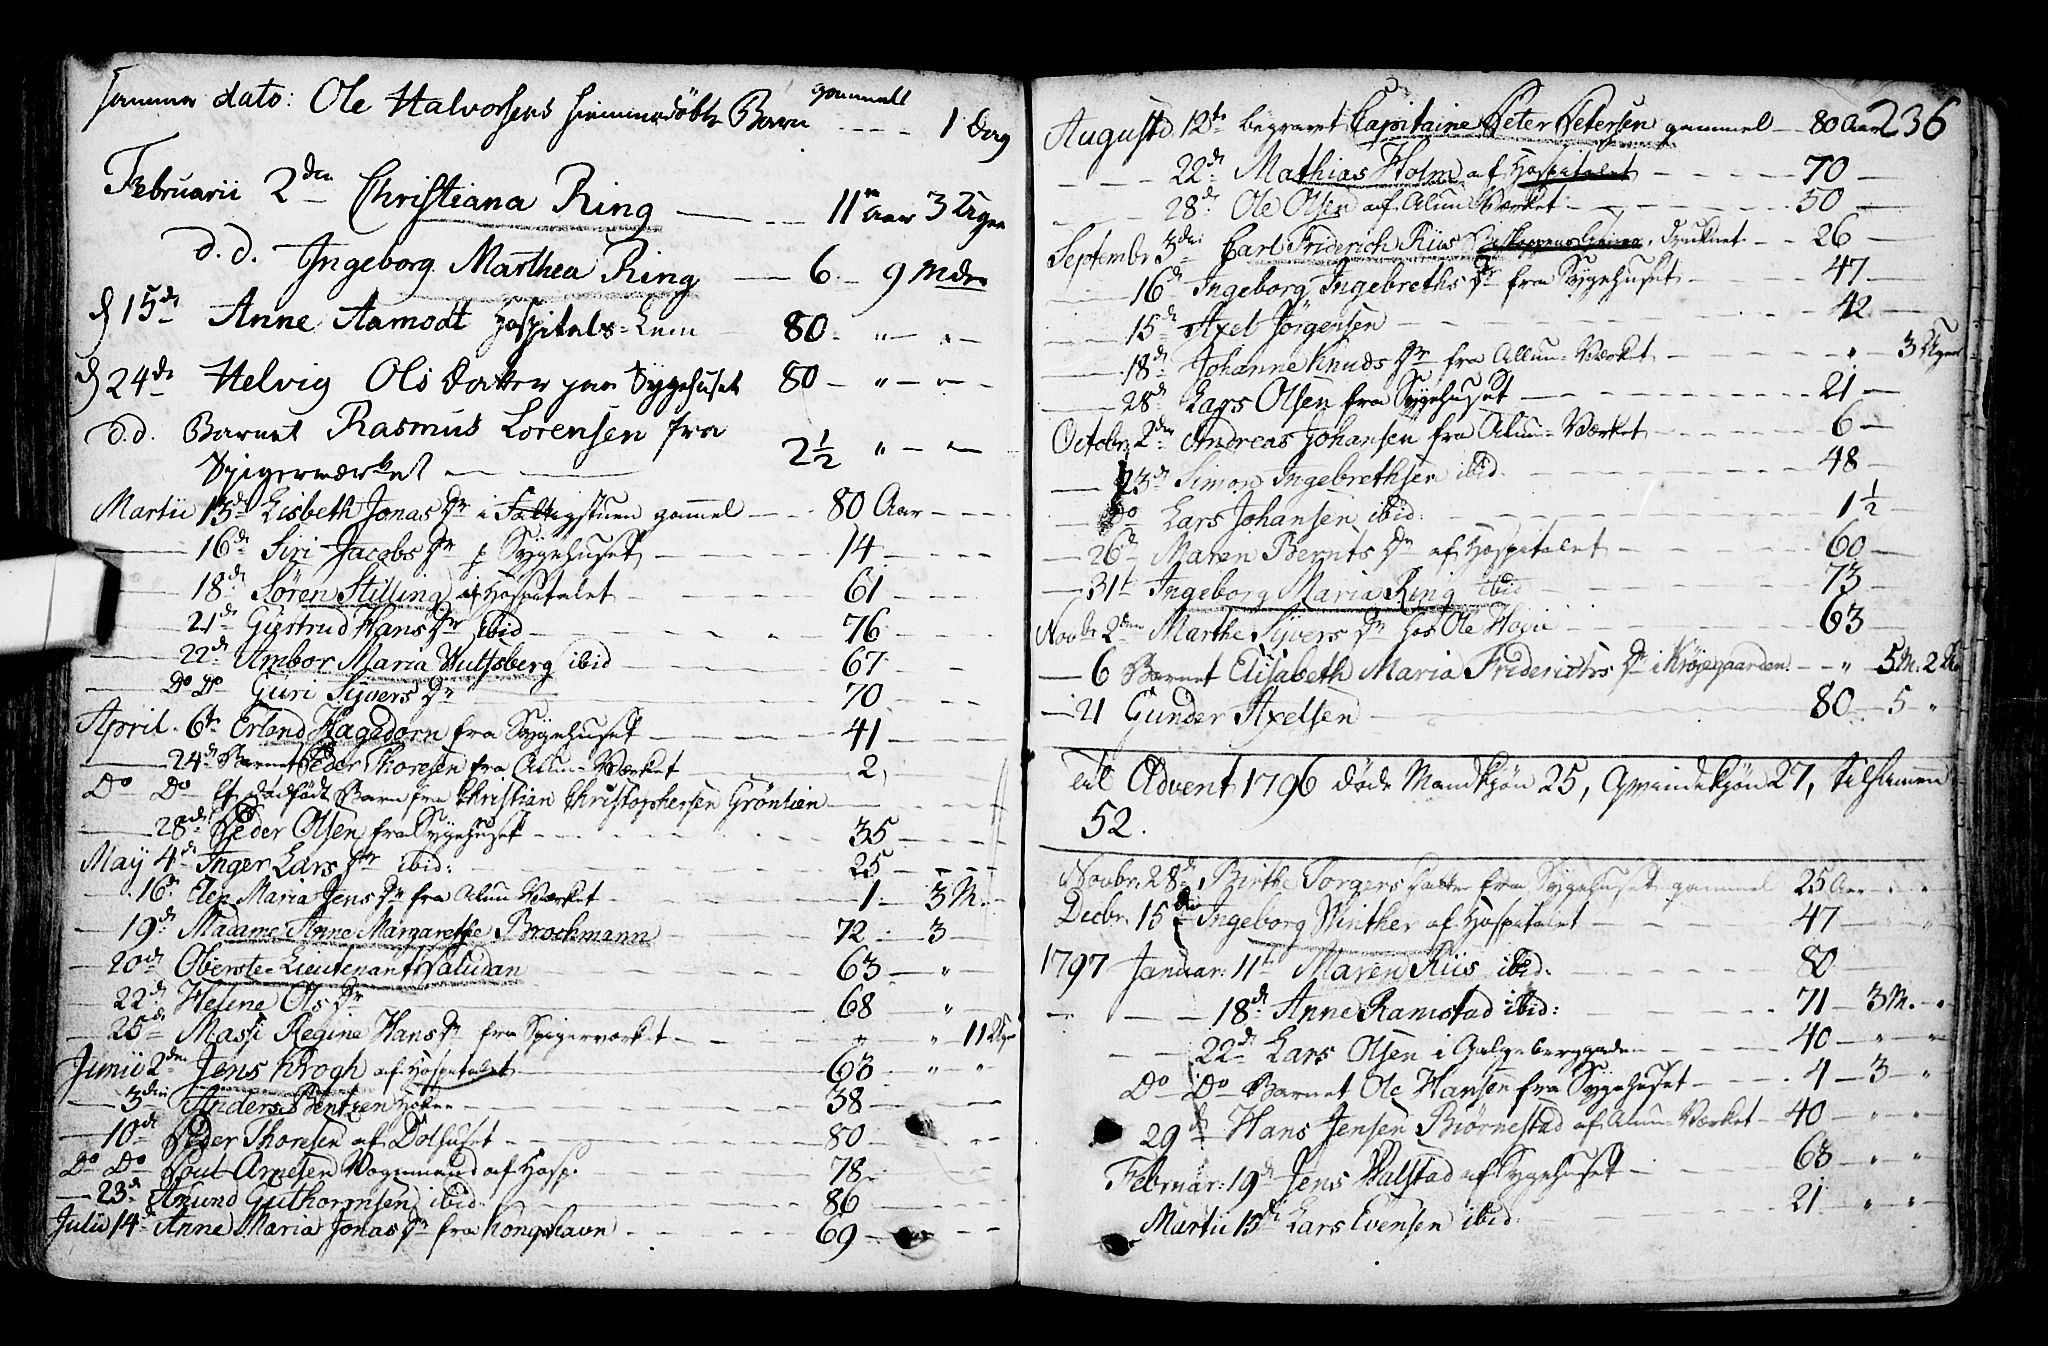 samme dato: Ole Halvorsens hiemmedöbte Barn gammelt - - - - 1 Dag
Februarii 2den Christiana Ring - - - 11 Aar 3 Uger
d.d. Ingeborg Marthea Ring - 6 - 9 Mdr
d 15de Anne Aamodt Hospitals-Lem 80 - " - " -
d 24de Helvig Ols Datter paa Sygehuset 80 - " - " -
d.d. Barnet Rasmus Lorensen fra
Spigerværket - - 2½ " - " -
Martii 13de Lisbeth Jonas Dr i Fattigstuen gamel - - 80 Aar - - -
16de Siri Jacobs Dr Sygehuset - - - 14 - - -
18de Sören Stilling af Hospitalet - - - 61 - - -
21de Giertrud Hans Dr ibid - - - 76 - - -
22de Ambor Maria Wulfsberg ibid - - 67 - -
Do Do Guri Syvers Dr - - - 70 - - -
April. 6te Erland Hagedorn fra Sygehuset - - - 41 - - -
24de Barnet Peder Thoresen fra Alun-Værket - - 2,
Do Do Et dödfödt Barn fra Christian Christophersen Gröntien - - -
28de Peder Olsen fra Sygehuset - - - 35 - - -
May 4de Inger Lars Dr ibid: - - - 25 - - -
16de Elen Maria Jens Dr fra Alun Værket - - - 1 - 3 M. -
19de Madame Anne Margarethe Brochmann - - 72 - 3
20de Oberste-Lieutenant Paludan - - - 63 - " -
22de Helene Ols Dr - - - 68 - "
25de Massi Regine Hans Dr fra Spigerværket - - - " - " 11 Uger
Junii 2den Jens Krogh af Hospitalet - - - 63 - " "
3die Anders Bentzen Höker - - - 38 - - -
10de Peder Thoresen af Dolhuset - - - 80 - - -
Do Do Poul Arnesen Vognmand af Hosp. 78 -
23de Amund Guthormsen ibid. - - - 86
Julii 14de Anne Maria Jonas Dr fra Kongshavn - - - 69 - - -
236
Augusti d. 12te begravet Capitaine Peter Petersen gammel - 80 Aar
22de Mathias Holm af Hospitalet - - - 70 -
28de Ole Olsen af Alun Værket - - - 50 -
Septembr 3die Carl Friderich Riis druknet - - 26 -
16de Ingeborg Ingebreths Dr fra Sygehuset - - - 47 -
15de Axel Jörgensen - - - 42 -
18de Johanne Knuds Dr fra Allun-Værket - - - " 3 Uger
28de Lars Olsen fra Sygehuset - - - 21 -
Octobr. 2den Andreas Johansen fra Alun-Værket - - - 6 -
23de Simon Ingebrethsen ibid. - - - 48 -
Do Lars Johansen ibid: - - - 1½ -
26de Maren Bernts Dr af Hospitalet - - - 60 -
31te Ingeborg Maria Ring ibid - - - 73 -
Novbr 2den Marthe Syvers Dr hos Ole Hoei - - - 63
6 Barnet Elisabeth Maria Friderichs Dr i Krøyegaarden. - " 5 M. 2 U
21 Gunder Axelsen - - - 80 - 5 "
Til Advent 1796 döde Mandkjön 25, Qvindekjön 27, tilsammen
52.
Novbr. 28de Birthe Torgers Datter fra Sygehuset gammel 25 Aar - "
Decbr. 15de Ingeborg Winther af Hospitalet - - - 47 - "
1797 Januar: 11te Maren Riis ibid. - - - 80 -
18de Anne Ramstad ibid: - - - 71 - 3 M. - "
22de Lars Olsen i Galgeberggaden - - - 40 - " - "
Do Do Barnet Ole Hansen fra Sygehuset - - - 4 - 3 - "
29de Hans Jensen Biørnestad af Alun-Værket - 40 - " - "
Februar: 19de Jens Walstad af Sygehuset - - - 63 - " - "
Martii 15de Lars Evensen ibid: - - - 21 - " - "